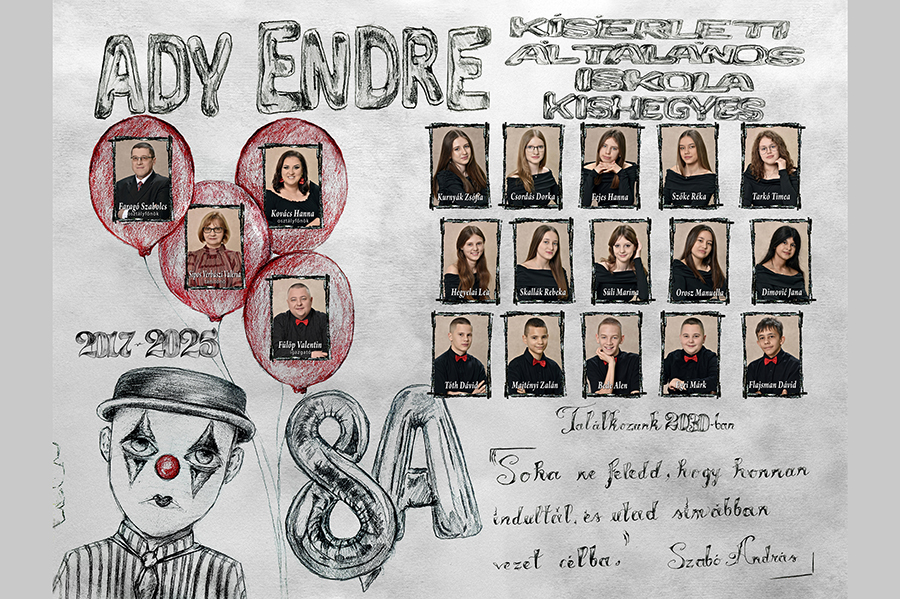 ADY ENDRE
KÍSÉRLETI
ÁLTALÁNOS
ISKOLA
KISHEGYES
Faragó Szabolcs
osztályfőnök
Kovács Hanna
osztályfőnök
Sipos Verbászi Valéria
Fülöp Valentin
igazgató
Kurnyák Zsófia
Csordás Dorka
Fejes Hanna
Szőke Réka
Tarkó Tímea
Hegyelai Lea
Skallák Rebeka
Süli Marina
Orosz Manuella
Dimović Jana
Tóth Dávid
Majtényi Zalán
Alen
Márk
Flajsman Dávid
2017-2025
8A
Találkozunk 2030-ban
"Soha ne feledd, hogy honnan
indultál, és utad simábban
vezet célba."
Szabó András